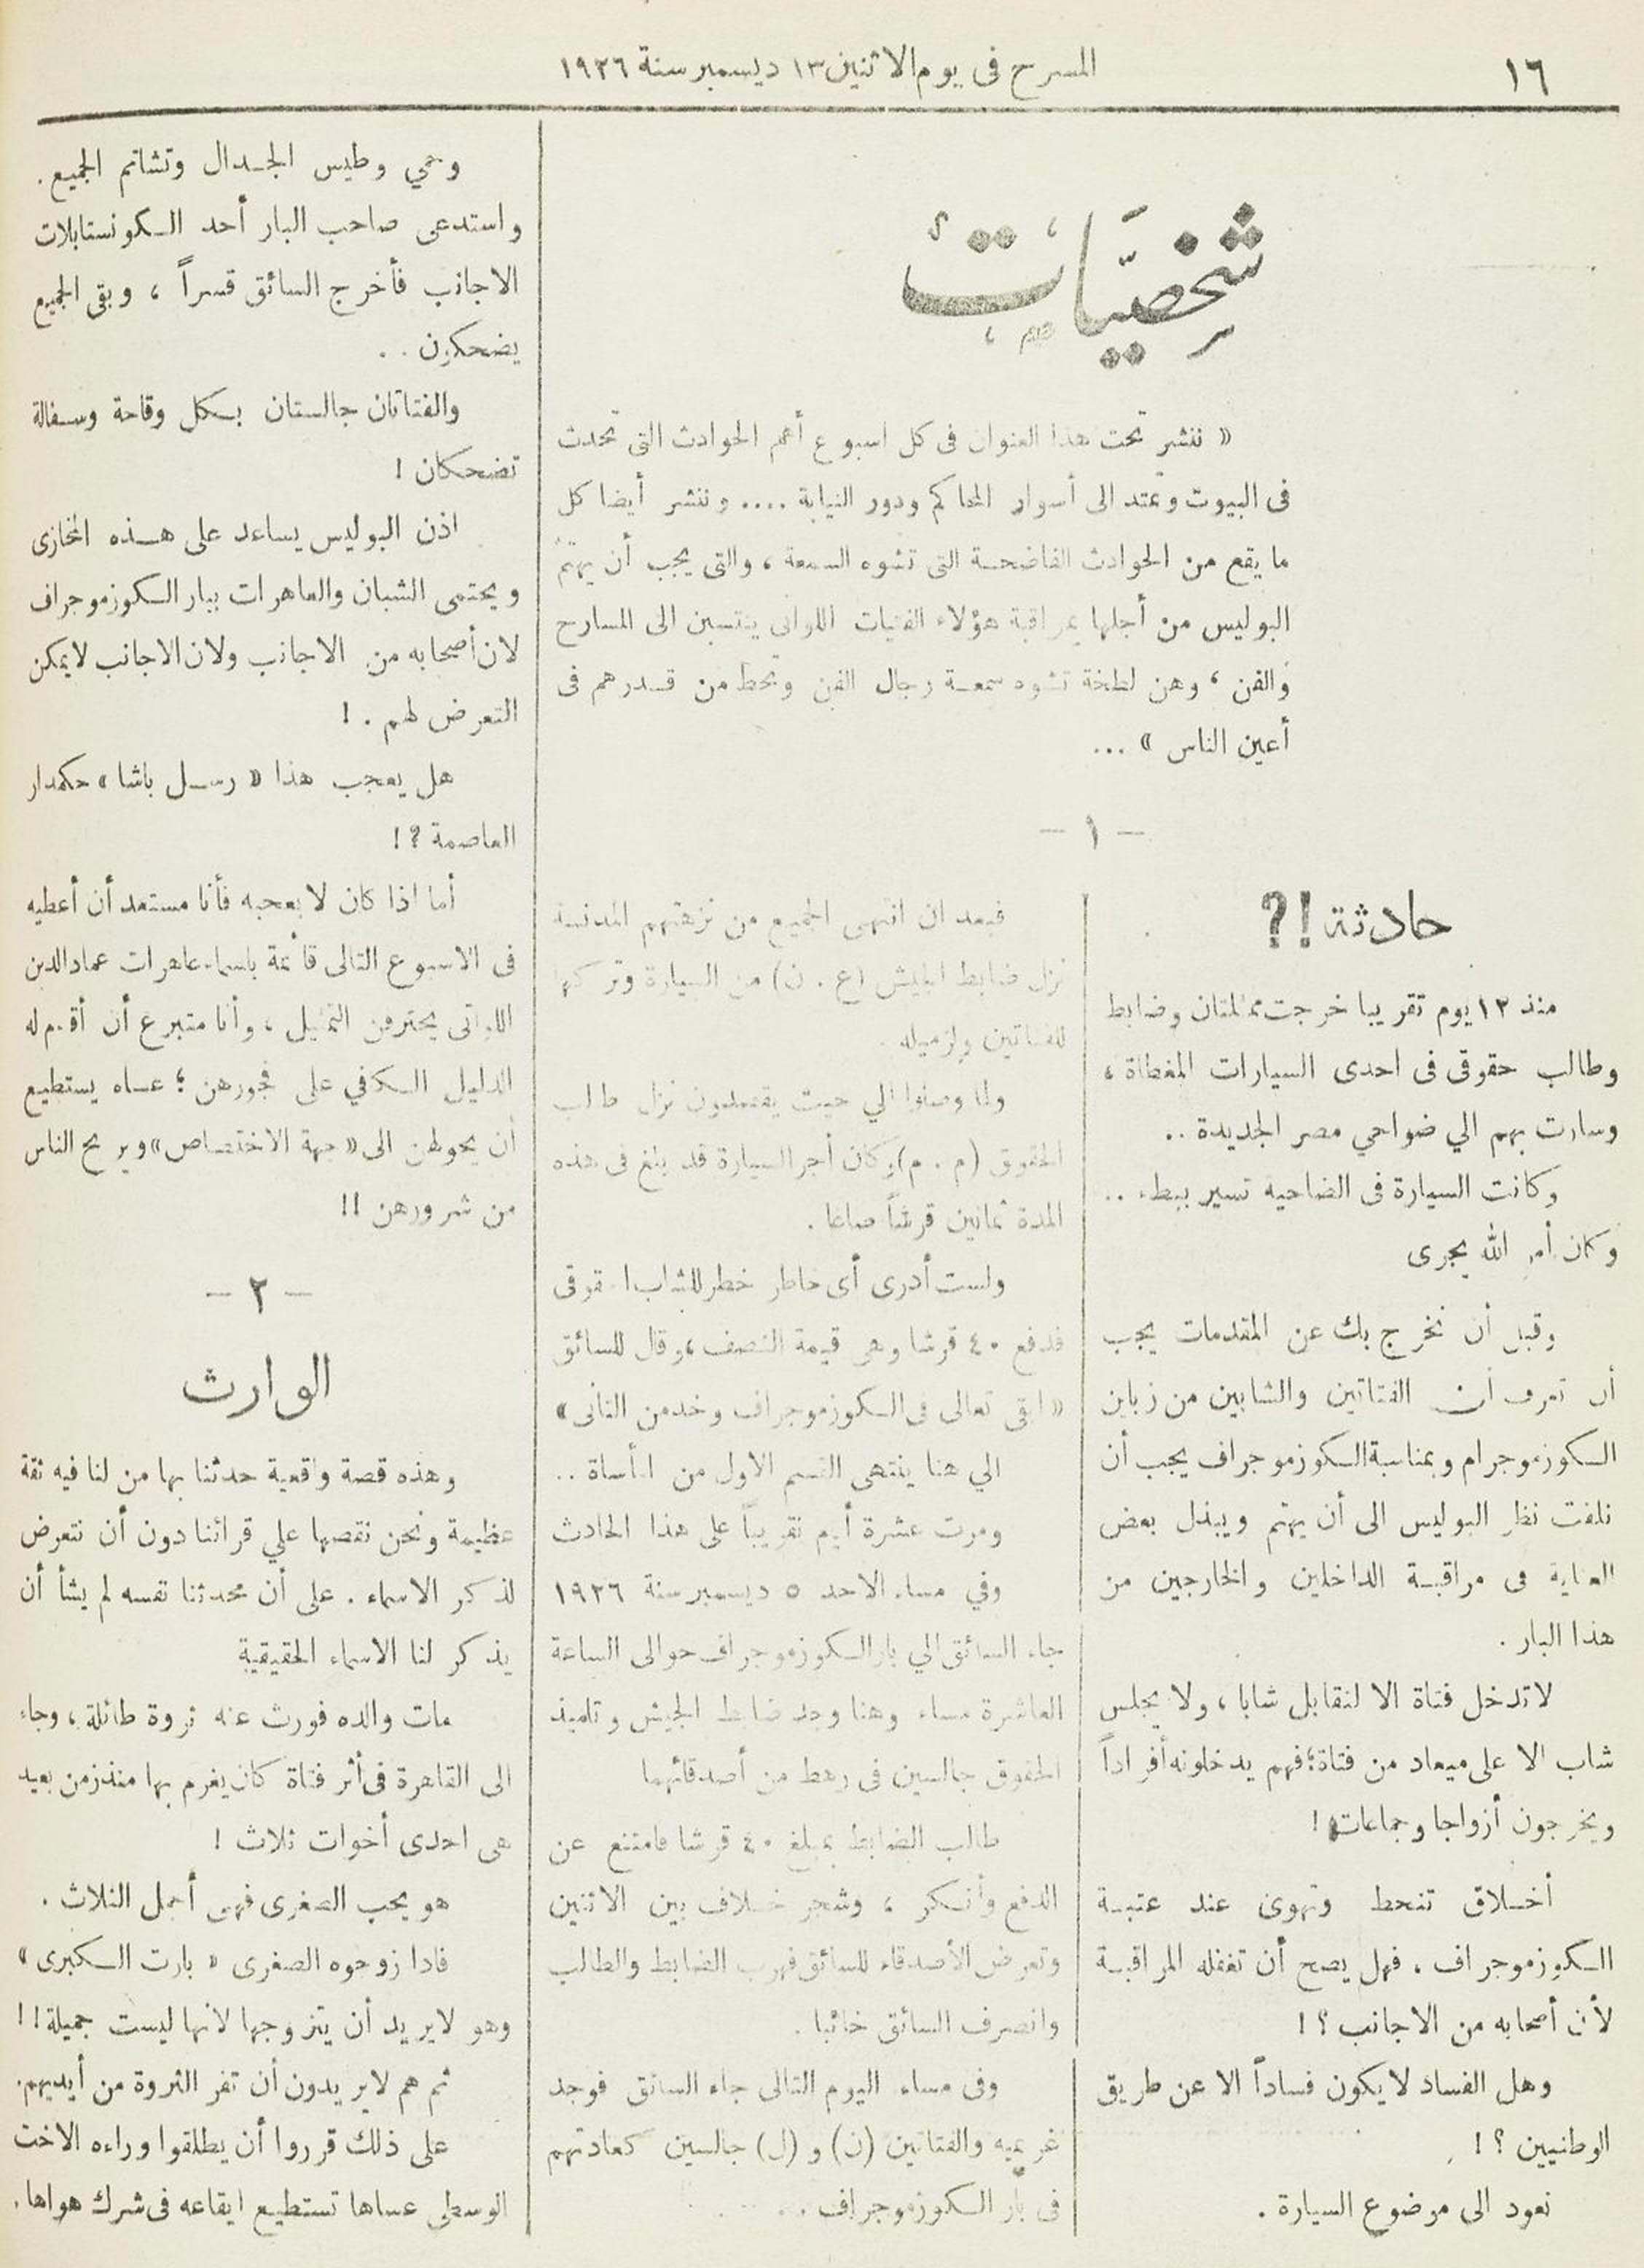 ١٦
المسرح فى يوم الاثنين ١٣ ديسمبر سنة ١٩٢٦
شخصيات
« ننشر تحت هذا العنوان فى كل اسبوع أهم الحوادث التى تحدث
فى البيوت وتمتد الى أسوار المحاكم ودور النيابة .... وننشر أيضا كل
ما يقع من الحوادث الفاضحة التى تشوه السمعة ، والتى يجب أن يهتم
البوليس من أجلها بمراقبة هؤلاء الفتيات اللواتى ينتسبن الى المسارح
والفن ، وهن لطخة تشوه سمعة رجال الفن وتحط من قدرهم فى
أعين الناس » ...
— ١ —
حادثة !؟
منذ ١٢ يوم تقريبا خرجت ممثلتان وضابط
وطالب حقوقى فى احدى السيارات المغطاة ،
وسارت بهم الي ضواحي مصر الجديدة ..
وكانت السيارة فى الضاحيه تسير ببطء ..
وكان أمر الله يجرى
وقبل أن نخرج بك عن المقدمات يجب
أن تعرف أن الفتاتين والشابين من زباين
الكوزموجرام وبمناسبة الكوزموجراف يجب أن
نلفت نظر البوليس الى أن يهتم ويبذل بعض
العناية فى مراقبة الداخلين والخارجين من
هذا البار .
لا تدخل فتاة الا لتقابل شابا ، ولا يجلس
شاب الا على ميعاد من فتاة ؛ فهم يدخلونه أفراداً
ويخرجون أزواجا وجماعات !
أخلاق تنحط وتهوى عند عتبة
الكوزموجراف ، فهل يصح أن تغفله المراقبة
لأن أصحابه من الاجانب ؟ !
وهل الفساد لا يكون فساداً الا عن طريق
الوطنيين ؟ !
نعود الى موضوع السيارة .
فبعد ان انتهى الجميع من نزهتهم المدنسة
نزل ضابط الجيش (ع . ن) من السيارة وتركها
للفتاتين ولزميله .
ولما وصلوا الي حيث يقصدون نزل طالب
الحقوق (م . م) وكان أجر السيارة قد بلغ فى هذه
المدة ثمانين قرشاً صاغا .
ولست أدرى أى خاطر خطر للشاب الحقوقى
فدفع ٤٠ قرشا وهو قيمة النصف ، وقال للسائق
« ابقى تعالى فى الكوزموجراف وخد من التانى »
الي هنا ينتهى القسم الاول من المأساة ..
ومرت عشرة أيام تقريباً على هذا الحادث
وفي مساء الاحد ٥ ديسمبر سنة ١٩٢٦
جاء السائق الي بار الكوزموجراف حوالى الساعة
العاشرة مساء وهنا وجد ضابط الجيش وتلميذ
الحقوق جالسين فى رهط من أصدقائهما
طالب الضابط بمبلغ ٤٠ قرشا فامتنع عن
الدفع وأنكر ، وشجر خلاف بين الاثنين
وتعرض الأصدقاء للسائق فهرب الضابط والطالب
وانصرف السائق خائبا .
وفى مساء اليوم التالى جاء السائق فوجد
غريميه والفتاتين (ن) و (ل) جالسين كعادتهم
فى بار الكوزموجراف . .
وحمي وطيس الجدال وتشاتم الجميع .
واستدعى صاحب البار أحد الكونستابلات
الاجانب فأخرج السائق قسراً ، وبقى الجميع
يضحكون . .
والفتاتان جالستان بكل وقاحة وسفالة
تضحكان !
اذن البوليس يساعد على هذه المخازى
ويحتمى الشبان والعاهرات ببار الكوزموجراف
لان أصحابه من الاجانب ولان الاجانب لايمكن
التعرض لهم . !
هل يعجب هذا « رسل باشا » حكمدار
العاصمة ? !
أما اذا كان لا يعجبه فأنا مستعد أن أعطيه
فى الاسبوع التالى قائمة باسماء عاهرات عماد الدين
اللواتى يحترفن التمثيل ، وأنا متبرع أن أقدم له
الدليل الكافي على فجورهن ؛ عساه يستطيع
أن يحولهن الى « جهة الاختصاص » ويريح الناس
من شرورهن !!
— ٢ —
الوارث
وهذه قصة واقعية حدثنا بها من لنا فيه ثقة
عظيمة ونحن نقصها علي قرائنا دون أن نتعرض
لذكر الاسماء . على أن محدثنا نفسه لم يشأ أن
يذكر لنا الاسماء الحقيقية
مات والده فورث عنه ثروة طائلة ، وجاء
الى القاهرة فى أثر فتاة كان يغرم بها منذ زمن بعيد
هى احدى أخوات ثلاث !
هو يحب الصغرى فهى أجمل الثلاث .
فاذا زوجوه الصغرى « بارت الكبرى »
وهو لايريد أن يتزوجها لانها ليست جميلة !!
ثم هم لايريدون أن تفر الثروة من أيديهم .
على ذلك قرروا أن يطلقوا وراءه الاخت
الوسطى عساها تستطيع ايقاعه فى شرك هواها .